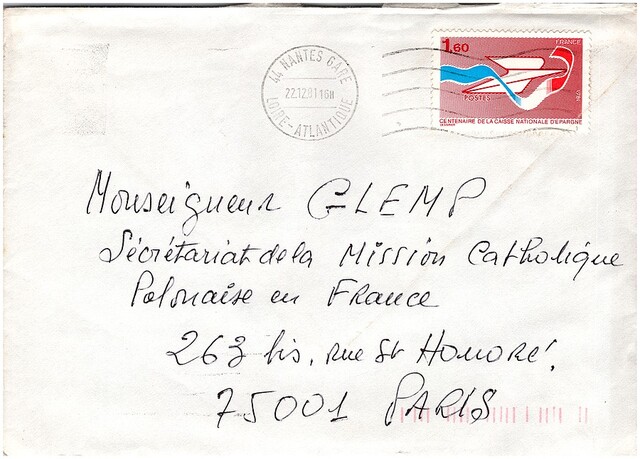 44 NANTES GARE
22.12.81 16H
LOIRE-ATLANTIQUE
1,60
FRANCE
POSTES
CENTENAIRE DE LA CAISSE NATIONALE D'EPARGNE
Monseigneur GLEMP
Sécrétariat de la Mission Catholique
Polonaise en France
263 bis, rue St Honoré,
75001 PARIS